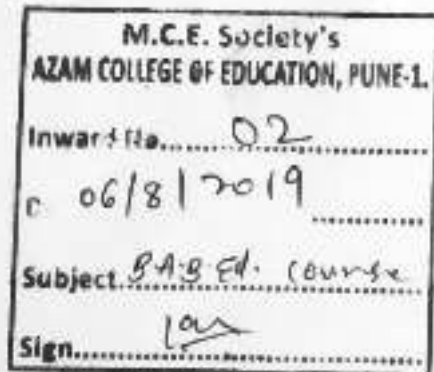 M.C.E. Society's
AZAM COLLEGE OF EDUCATION, PUNE-1.
Inward No..... 02
D 06/8/2019 ............
Subject. B.A.B Ed. Course
Sign.....